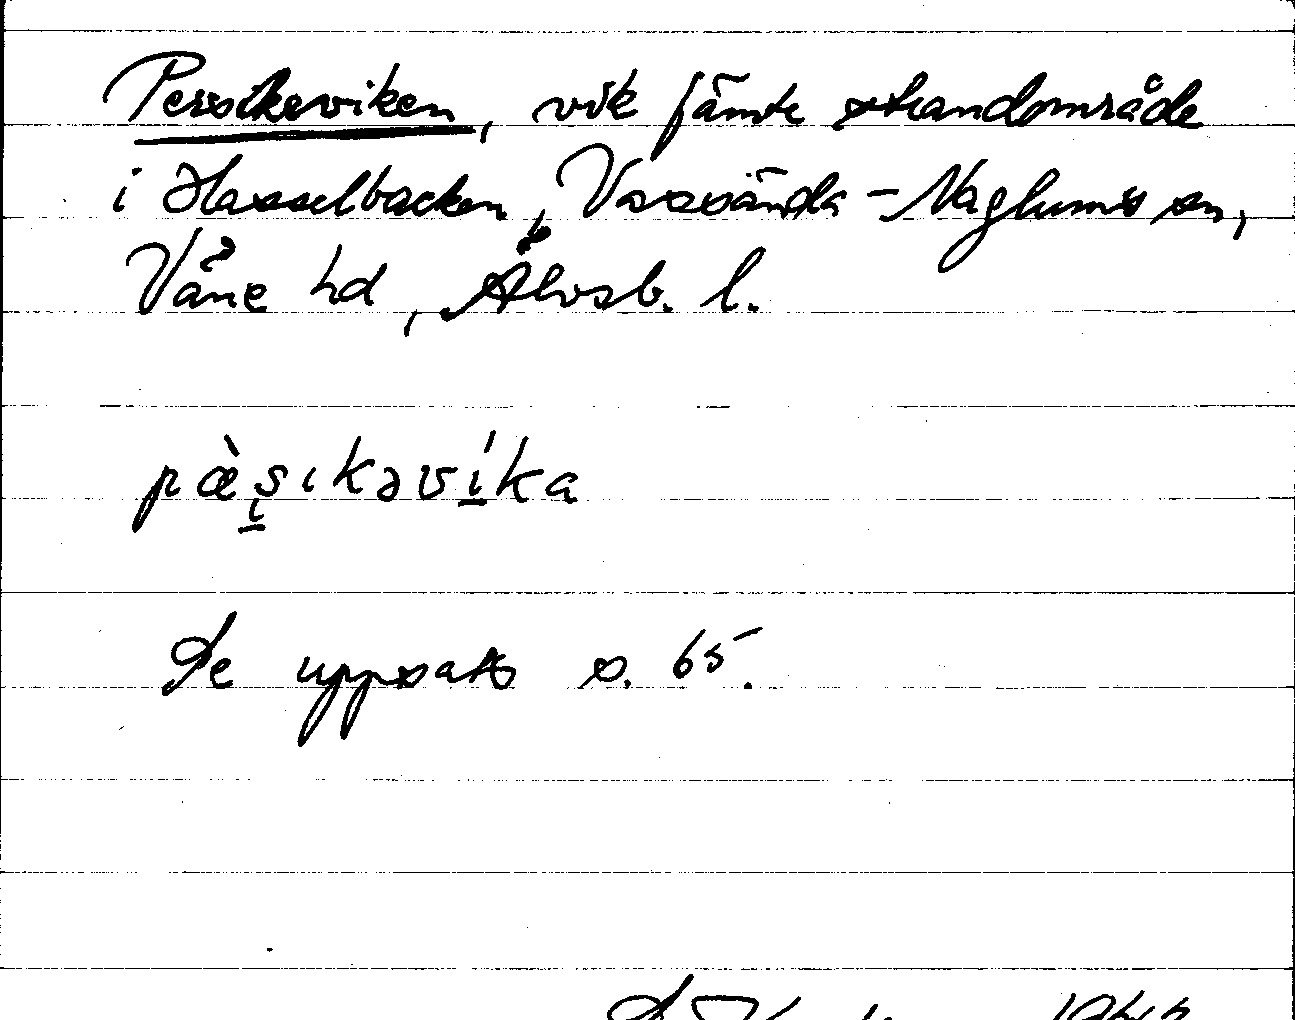 Persikeviken, vik jämte strandområde
i Hasselbacken, Vassända-Naglums sn,
Våne hd, Älvsb. l.
pæ̀ṣıkəvíka
Se uppsats s. 65.